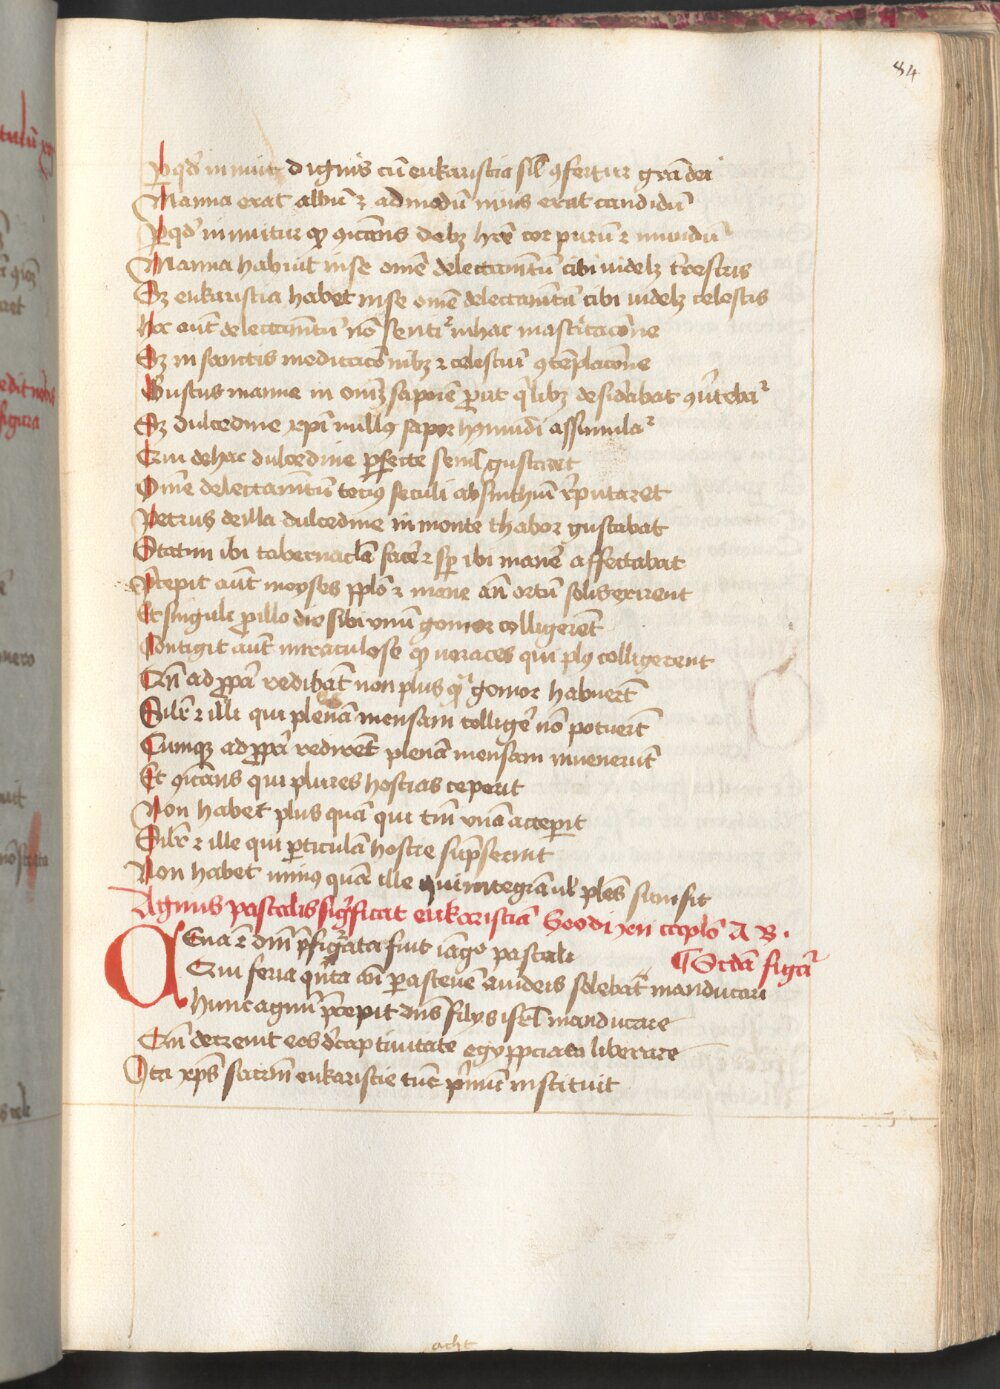 84
Per qd innuit dignis cū eukaristia sil ꝯfertur grā dei
Manna erat albū ⁊ admodū niuis erat candidū
Per qd innuitur qꝫ ꝯicans debꝫ hr̄e cor purū ⁊ mundū
Manna habuit in se omē delectamtū cibi uidelꝫ t̄restris
Sꝫ eukaristia habet in se omē delectamtā cibi uidelꝫ celestis
Hoc aut delectamtū nō sentit in hac masticacōne
Sꝫ in sanctis meditacōnibꝫ ⁊ celestiū ꝯtēplacōne
Gustus manne in omē saporē put qlibꝫ desidabat ꝯutebat
Sꝫ dulcedine xpi nullꝰ sapor hꝰ mūdi assimulat
Qui de hac dulcedine pfecte semł gustaret
Omē delectamtū tociꝰ seculi absinthiū reputaret
Petrus de illa dulcedine in monte thabor gustabat
Statim ibi tabernacla face ⁊ sp ibi mane affectabat
Precepit aut moyses pplo ⁊ mane an ortū solis exirent
Et singuli p illo die sibi vnū gomor colligerent
Contigit aut miraculose qꝫ uoraces qui plꝰ colligerent
Cū ad ppa redibāt non plus qꝫ gomor habuert
Silr ⁊ illi qui plenā mensam collige nō potuert
Cumqꝫ ad ppa redirent plenā mensam inuenerūt
Et ꝯicans qui plures hostias ceperit
Non habet plus quā qui tm vnā acceperit
Silr ⁊ ille qui pticulā hostie sūpserit
Non habet minꝰ quā ille qui integrā ul ples sumpsit
Agnus pascalis sigficat eukaristiā Exodi xii caplo A B.
¶ Scda figura
Cena ē dm pfigata fuit i agno pascali
Qui feria qnta an pasceue a iudeis solebat manducari
Hunc agnū pcepit dns filijs isrl manducare
Cū decreuit eos de captiuitate egyppciaca liberare
Ita xps sacrm eukaristie tūc pmū instituit
acht